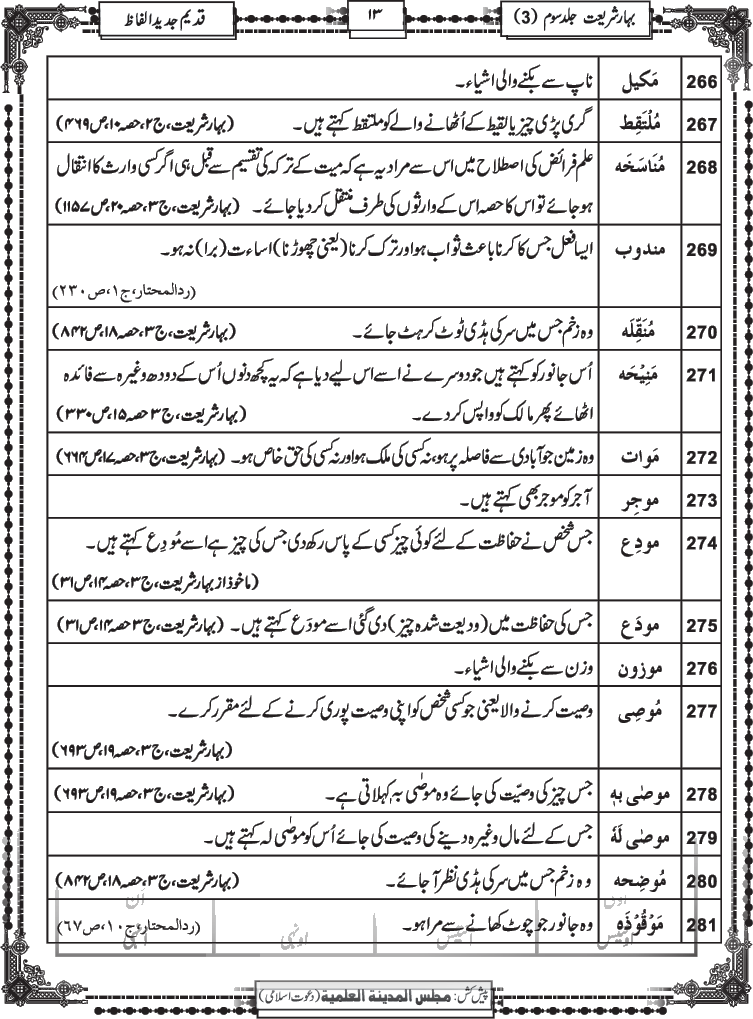 بہارِ شریعت جلد سوم (3)
۱۳
قدیم جدید الفاظ
266 مَکیل ناپ سے بکنے والی اشیاء۔
267 مُلْتَقِط گری پڑی چیز یا لقیط کے اُٹھانے والے کو ملتقط کہتے ہیں۔ (بہارشریعت،ج۲،حصہ۱۰،ص۴۶۹)
268 مُنَاسَخَہ علم فرائض کی اصطلاح میں اس سے مراد یہ ہے کہ میت کے ترکہ کی تقسیم سے قبل ہی اگر کسی وارث کا انتقال
ہو جائے تو اس کا حصہ اس کے وارثوں کی طرف منتقل کر دیا جائے۔ (بہارشریعت،ج۳،حصہ۲۰،ص۱۱۵۷)
269 مندوب ایسا فعل جس کا کرنا باعث ثواب ہو اور ترک کرنا (یعنی چھوڑنا) اساءت (برا) نہ ہو۔
(ردالمحتار،ج۱،ص۲۳۰)
270 مُنَقِّلَہ وہ زخم جس میں سر کی ہڈی ٹوٹ کر ہٹ جائے۔ (بہارشریعت،ج۳،حصہ۱۸،ص۸۴۲)
271 مَنِیْحَہ اُس جانور کو کہتے ہیں جو دوسرے نے اسے اس لیے دیا ہے کہ یہ کچھ دنوں اُس کے دودھ وغیرہ سے فائدہ
اٹھائے پھر مالک کو واپس کر دے۔ (بہارشریعت،ج۳ حصہ۱۵،ص۳۳۰)
272 مَوات وہ زمین جو آبادی سے فاصلہ پر ہو،نہ کسی کی ملک ہو اور نہ کسی کی حق خاص ہو۔ (بہارشریعت،ج۳،حصہ۱۷،ص۶۶۴)
273 موجِر آجر کو موجر بھی کہتے ہیں۔
274 مودِع جس شخص نے حفاظت کے لئے کوئی چیز کسی کے پاس رکھ دی جس کی چیز ہے اسے مُودِع کہتے ہیں۔
(ماخوذ از بہارشریعت،ج۳،حصہ۱۴،ص۳۱)
275 مودَع جس کی حفاظت میں (ودیعت شدہ چیز) دی گئی اسے مودَع کہتے ہیں۔ (بہارشریعت،ج۳ حصہ۱۴،ص۳۱)
276 موزون وزن سے بکنے والی اشیاء۔
277 مُوصِی وصیت کرنے والا یعنی جو کسی شخص کو اپنی وصیت پوری کرنے کے لئے مقرر کرے۔
(بہارشریعت،ج۳،حصہ۱۹،ص۶۹۳)
278 موصٰی بِہٖ جس چیز کی وصیّت کی جائے وہ موصٰی بہٖ کہلاتی ہے۔ (بہارشریعت،ج۳،حصہ۱۹،ص۶۹۳)
279 موصٰی لَہٗ جس کے لئے مال وغیرہ دینے کی وصیت کی جائے اُس کو موصٰی لہ کہتے ہیں۔
280 مُوضِحہ وہ زخم جس میں سر کی ہڈی نظر آ جائے۔ (بہارشریعت،ج۳،حصہ۱۸،ص۸۴۲)
281 مَوْقُوْذَہ وہ جانور جو چوٹ کھانے سے مرا ہو۔ (ردالمحتار،ج۱۰،ص۶۷)
پیش کش: مجلس المدینة العلمیة (دعوت اسلامی)